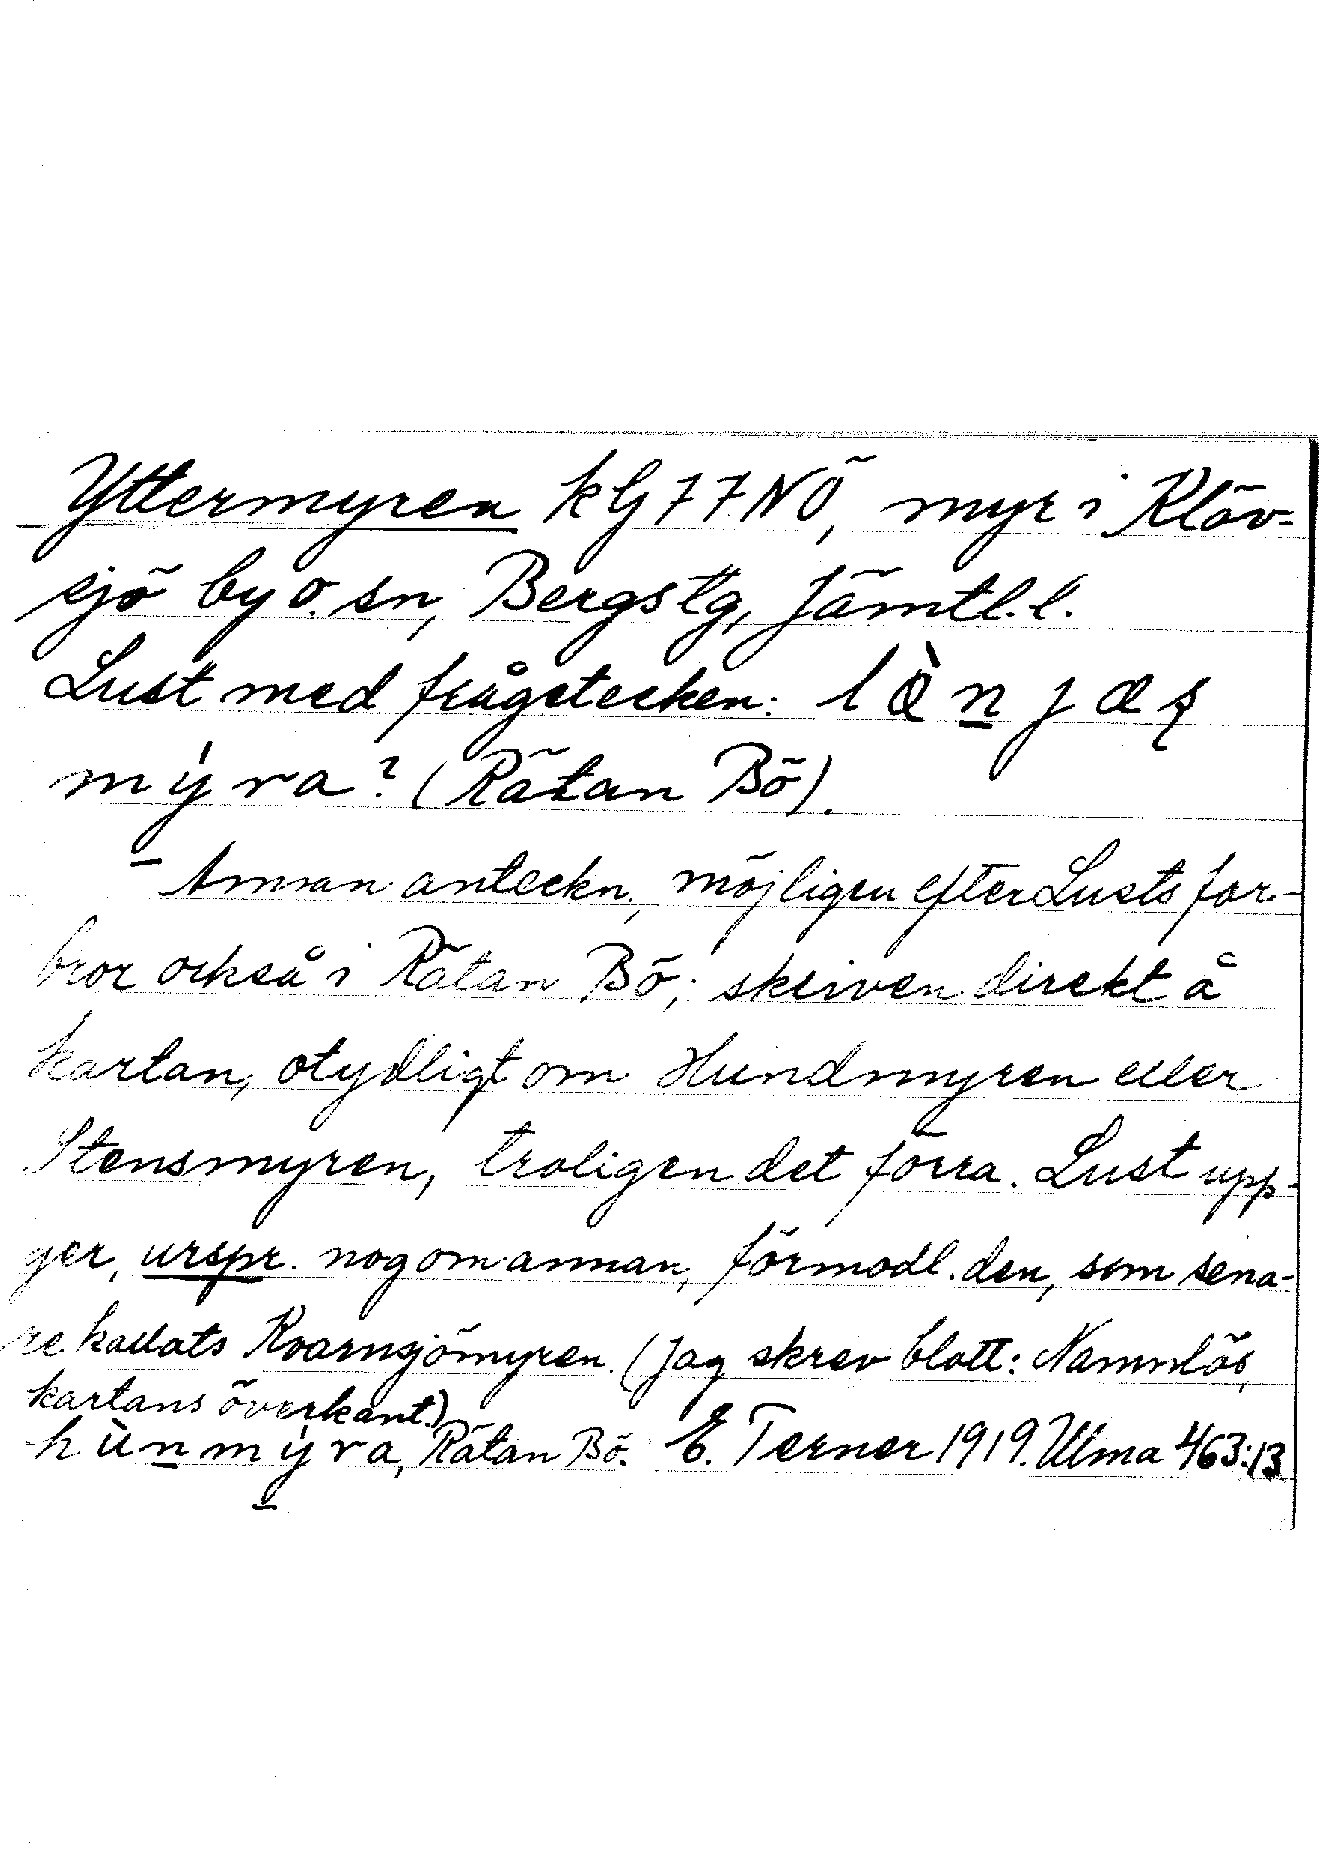 Yttermyren kG77NÖ, myr i Klöv-
sjö by o. sn, Bergs tg, Jämtl. l.
Lust med frågetecken: læ̀n̲jæʂ
mýra? (Rätan Bö).
– Annan anteckn., möjligen efter Lusts far-
bror också i Rätan Bö; skriven direkt å
kartan, otydligt om Hundmyren eller
Stensmyren, troligen det förra. Lust upp-
ger, urspr. nog om annan, förmodl. den, som sena-
re kallats Kvarnsjömyren. (Jag skrev blott: Namnlös,
kartans överkant.)
hùn̲mýra, Rätan Bö. E. Terner 1919. Ulma 463:13